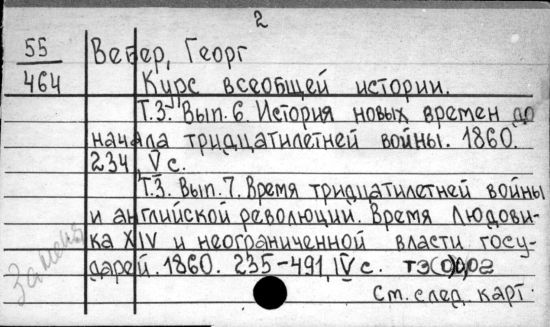 2
55
464
Вебер, Георг
Курс всеобщей истории.
Т.3. Вып. 6. История новых времен до
начала тридцатилетней войны. 1860.
234, V с.
Т.3. Вып. 7. Время тридцатилетней войны
и английской революции. Время Людови-
ка XIV и неограниченной власти госу-
дарей. 1860. 235-491, IV с.
См. след. карт.